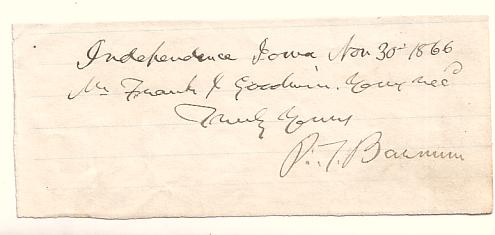 Independence Iowa Nov 30th 1866
Mr Frank J Goodwin. Yours rec'd
Truly Yours
P. T. Barnum